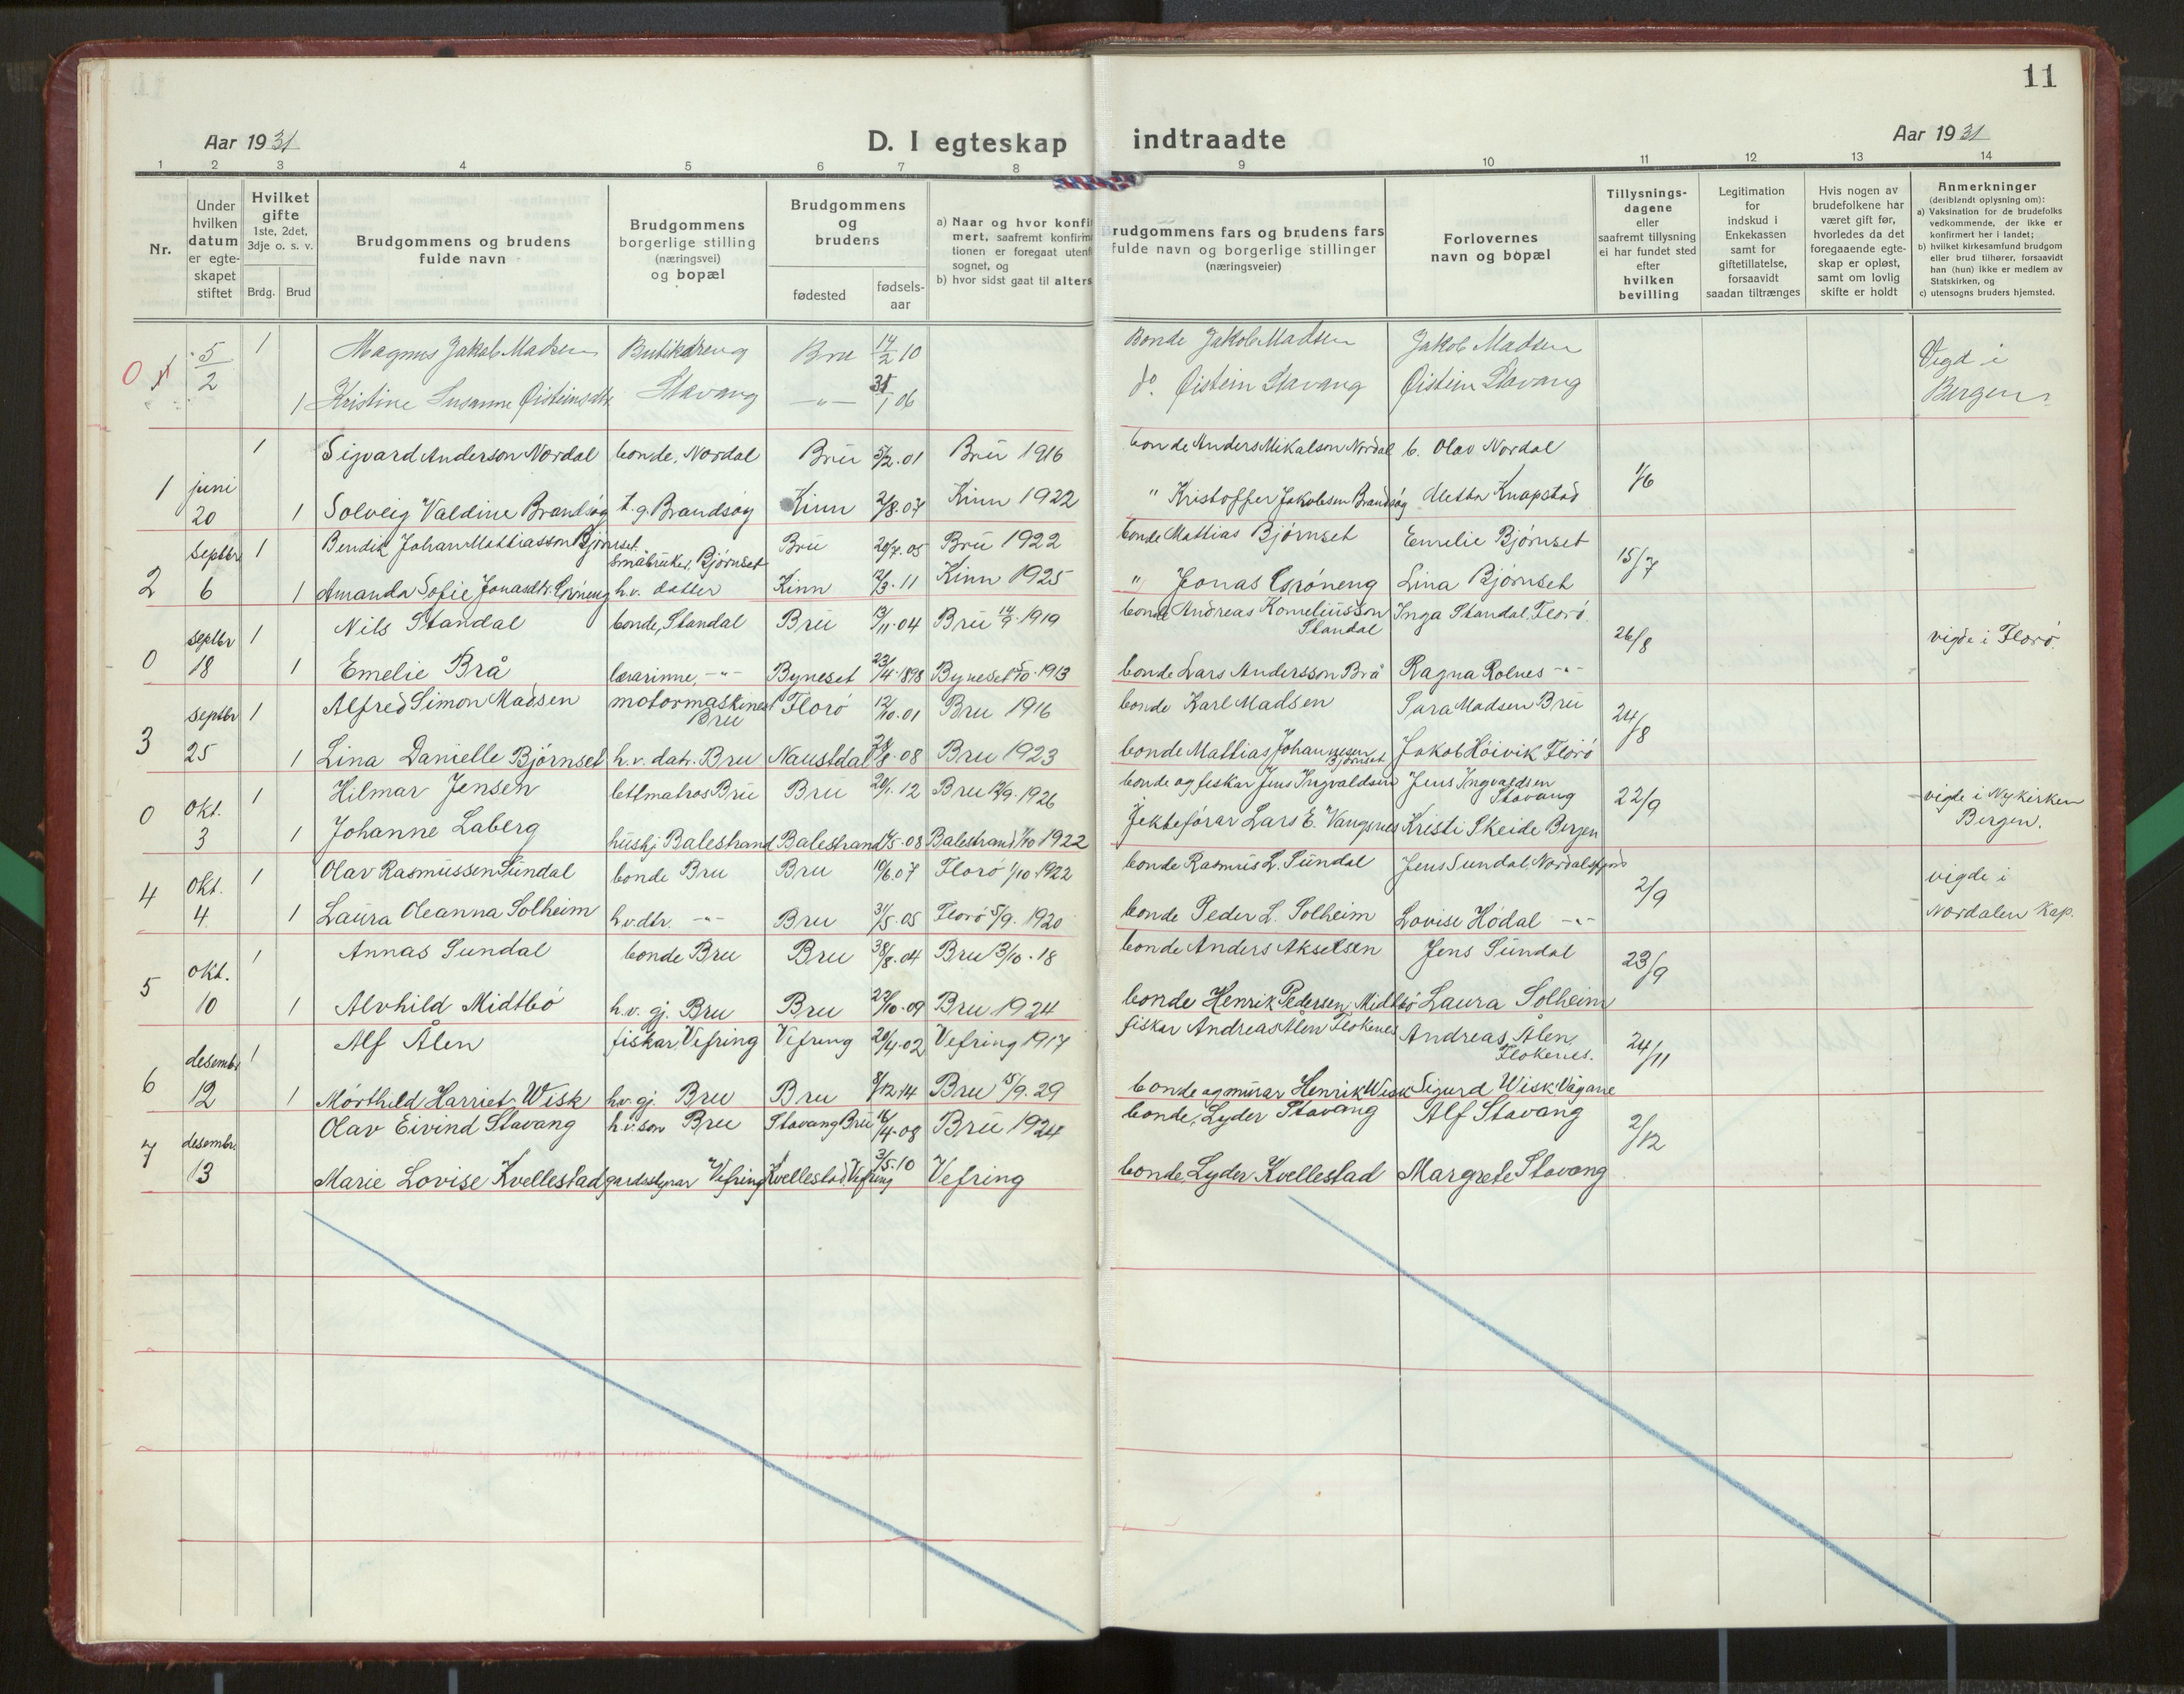 11
Aar 1931
D. I egteskap indtraadte
Aar 1931
1 2 3 4 5 6 7 8 9 10 11 12 13 14
Nr.
Under
hvilken
datum
er egte-
skapet
stiftet
Hvilket
gifte
1ste, 2det,
3dje o. s. v.
Brdg. Brud
Brudgommens og brudens
fulde navn
Brudgommens
borgerlige stilling
(næringsvei)
og bopæl
Brudgommens
og
brudens
fødested
fødsels-
aar
a) Naar og hvor konfi
mert, saafremt konfirm
tionen er foregaat utenf
sognet, og
b) hvor sidst gaat til alters
rudgommens fars og brudens fars
fulde navn og borgerlige stillinger
(næringsveier)
Forlovernes
navn og bopæl
Tillysnings-
dagene
eller
saafremt tillysning
ei har fundet sted
efter
hvilken
bevilling
Legitimation
for
indskud i
Enkekassen
samt for
giftetillatelse,
forsaavidt
saadan tiltrænges
Hvis nogen av
brudefolkene har
været gift før,
hvorledes da det
foregaaende egte-
skap er opløst,
samt om lovlig
skifte er holdt
Anmerkninger
(deriblendt oplysning om):
a) Vaksination for de brudefolks
vedkommende, der ikke er
konfirmert her i landet;
b) hvilket kirkesamfund brudgom
eller brud tilhører, forsaavidt
han (hun) ikke er medlem av
Statskirken, og
c) utensogns bruders hjemsted.
0 5/2 1 Magnus Jakob Madsen Butikdreng Bru 14/2 10 Bonde Jakob Madsen Jakob Madsen Vigd i
1 Kristine Susanne Øisteinsdtr Stavang -"- 31/1 06 do. Øistein Stavang Øistein Stavang Bergen
1 Sigvard Anderson Nordal bonde, Nordal Bru 5/2.01 Bru 1916 bonde Anders Mikalson Nordal b. Olav Nordal
1 juni 20 1 Solveig Valdine Brandsøy t.g. Brandsøy Kinn 2/8.07 Kinn 1922 " Kristoffer Jakobsen Brandsøy Aletta Knapstad 1/6
septbr 1 Bendik Johan Mattiasson Bjørnset småbruker, Bjørnset Bru 20/7.05 Bru 1922 bonde Mattias Bjørnset Emelie Bjørnset
2 6 1 Amanda Sofie Jonasdtr. Grøneng h.v. datter Kinn 12/3.11 Kinn 1925 " Jonas Grøneng Lina Bjørnset 15/7
septbr 1 Nils Standal bonde, Standal Bru 13/11.04 Bru 14/9.1919 bonde Andreas Korneliusson Standal Inga Standal, Florø.
0 18 1 Emelie Brå lærarinne, -"- Byneset 23/4.1898 Byneset 5/10.1913 bonde Lars Andersson Brå Ragna Rolnes -"- 26/8 vigde i Florø.
septbr 1 Alfred Simon Madsen motormaskinist Bru Florø 12/10.01 Bru 1916 bonde Karl Madsen Sara Madsen Bru
3 25 1 Lina Danielle Bjørnset h.v. datr. Bru Naustdal 28/8 08 Bru 1923 bonde Mattias Johannesen Bjørnset Jakob Høivik Florø 24/8
Okt. 1 Hilmar Jensen lettmatros Bru Bru 20/1.12 Bru 12/9.1926 bonde og fiskar Jens Ingvaldsen Jens Ingvaldsen Stavang
0 3 1 Johanne Laberg hushj Balestrand Balestrand 14/5-08 Balestrand 1/10 1922 Jekteførar Lars E. Vangsnes Kristi Skeide Bergen 22/9 vigde i Nykirken Bergen.
Okt. 1 Olav Rasmussen Sundal bonde Bru Bru 10/6.07 Florø 1/10.1922 bonde Rasmus L. Sundal Jens Sundal, Nordalsfjord
4 4. 1 Laura Oleanna Solheim h.v.dtr. -"- Bru 31/5.05 Florø 5/9.1920 bonde Peder L. Solheim Lovise Hødal -"- 2/9 vigde i Nordalen Kap.
okt. 1 Annas Sundal bonde Bru Bru 38/8.04 Bru 3/10.18 bonde Anders Akselsen Jens Sundal
5 10 1 Alvhild Midtbø h.v. gj. Bru Bru 27/10.09 Bru 1924 bonde Henrik Pedersen, Midtbø Laura Solheim 23/9
desembr 1 Alf Ålen fiskar, Vefring Vefring 20/4.02 Vefring 1917 fiskar Andreas Ålen Flokenes Andreas Ålen, Flokenes.
6 12 1 Mørthild Harriet Wisk h.v. gj. Bru Bru 8/12.14 Bru 15/9.29 bonde og murar Henrik Wisk Sigurd Wisk Vågane 24/11
7 desembr. Olav Eivind Stavang h.v. son Bru Stavang Bru 16/4-08 Bru 1924 bonde, Lyder Stavang Alf Stavang
13 Marie Lovise Kvellestad gardsstyrar Vefring Kvellestad, Vefring 3/5.10 Vefring bonde Lyder Kvellestad Margrete Stavang 2/12